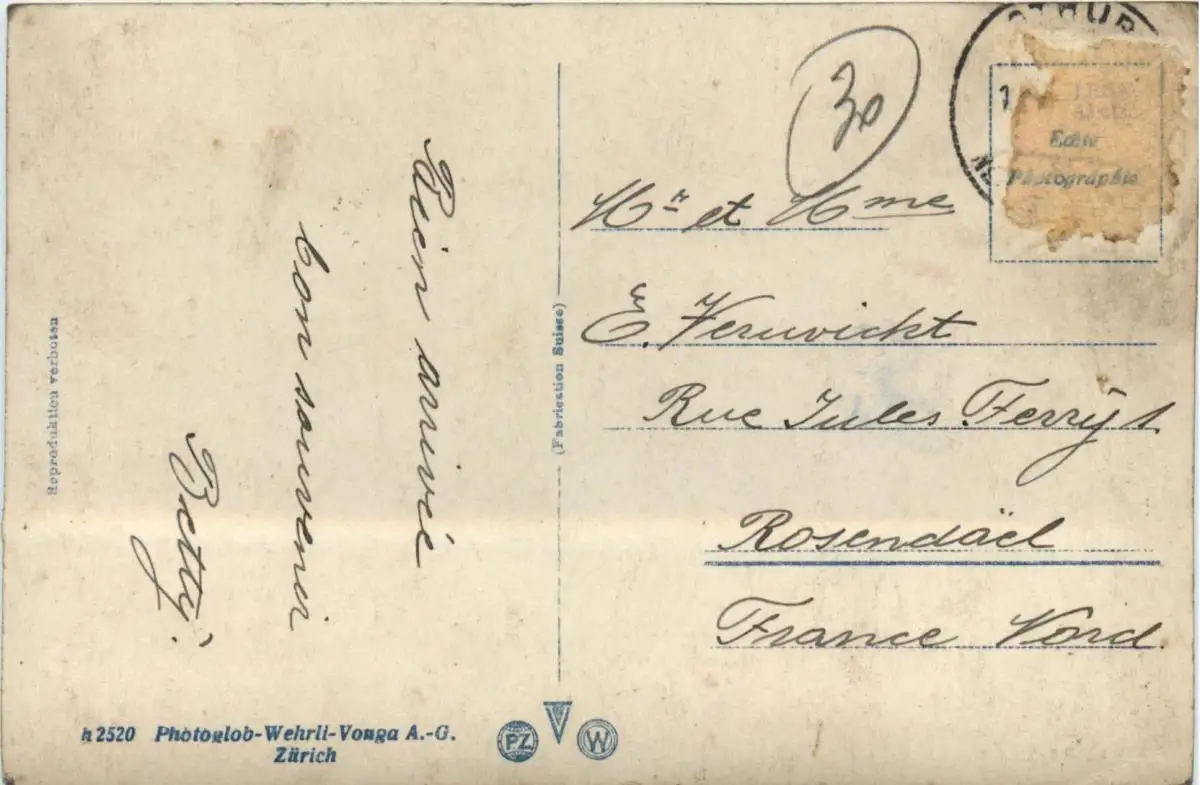 Bien arrivée
bon souvenir
Betty.
30
Mr et Mme
E. Verwickt
Rue Jules Ferry 1.
Rosendäel
France Nord
Echte
Photographie
(Fabrication Suisse)
Reproduktion verboten
h 2520 Photoglob-Wehrli-Vouga A.-G.
Zürich
PZ
V
W